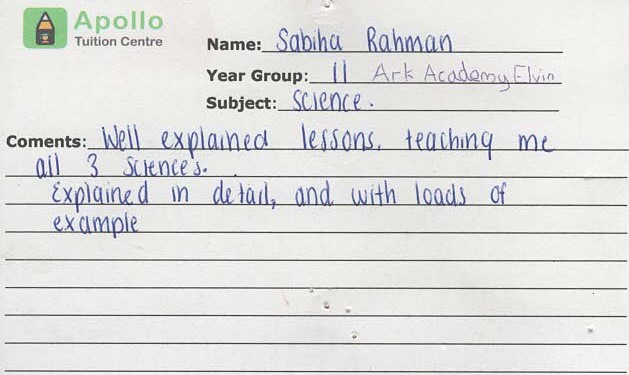 Apollo
Tuition Centre
Name: Sabiha Rahman
Year Group: 11 Ark Academy Elvin
Subject: Science.
Coments: Well explained lessons, teaching me
all 3 sciences.
Explained in detail, and with loads of
example